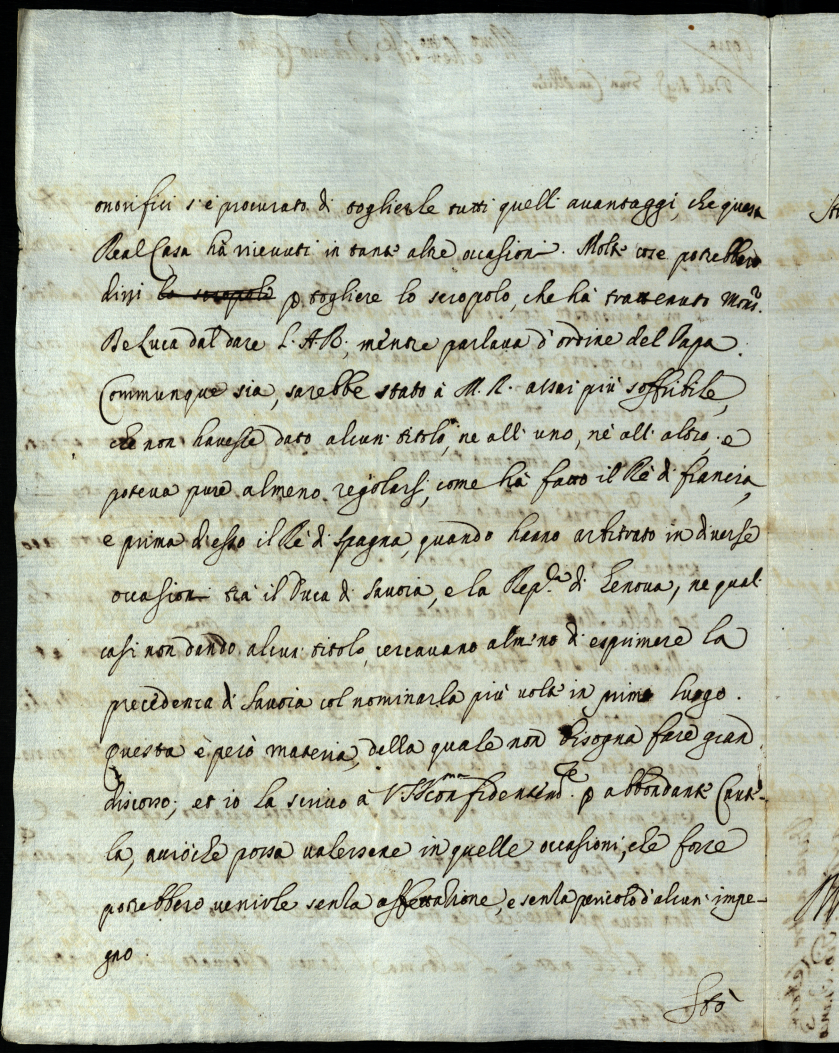 onorifici s'è procurato di toglierle tutti quelli avantaggi, che questa
Real Casa hà ricevuti in tante altre occasioni. Molte cose potrebbero
dirsi lo scropolo p togliere lo scropolo, che hà trattenuto Mons.r
De Luca dal dare l'A.R., mentre parlava d'ordine del Papa.
Communque sia, sarebbe stato à M. R. assai più soffribile,
che non havesse dato alcun titolo, ne all'uno, nè all'altro, e
poteva pure almeno regolarsi, come hà fatto il Rè di francia,
e prima d'esso il Rè di Spagna, quando hanno arbitrato in diverse
occasioni trà il Duca di Savoia, e la Rep.ca di Genova, ne quali
casi non dando alcun titolo, cercavano almeno di esprimere la
precedenza di Savoia col nominarla più volte in primo luogo.
Questa è però materia, della quale non bisogna fare gran
discorso; et io la scrivo à V.S. Ill.ma confidentem.te p abbondante Caute-
la, acciòche possa valersene in quelle occasioni, che forse
potrebbero venirle senza affettatione, e senza pericolo d'alcun impe-
gno.
Stò